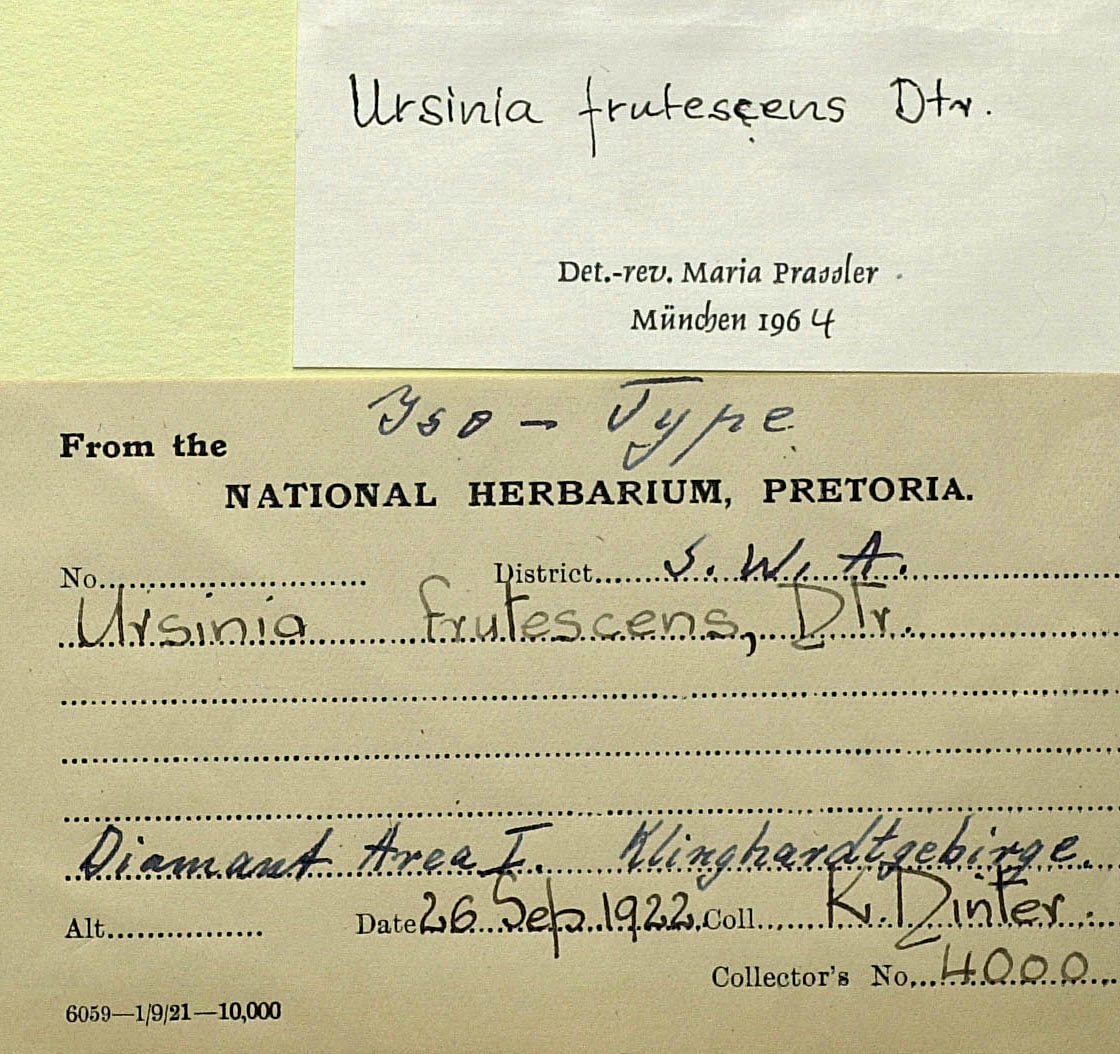 Ursinia frutescens Dtr.
Det.-rev. Maria Prassler
München 1964
Iso - Type
From the
NATIONAL HERBARIUM, PRETORIA.
No. District S. W. A.
Ursinia frutescens, Dtr.
Diamant Area I. Klinghardtgebirge.
Alt. Date 26 Sep. 1922. Coll. K. Dinter.
Collector's No. 4000
6059—1/9/21—10,000